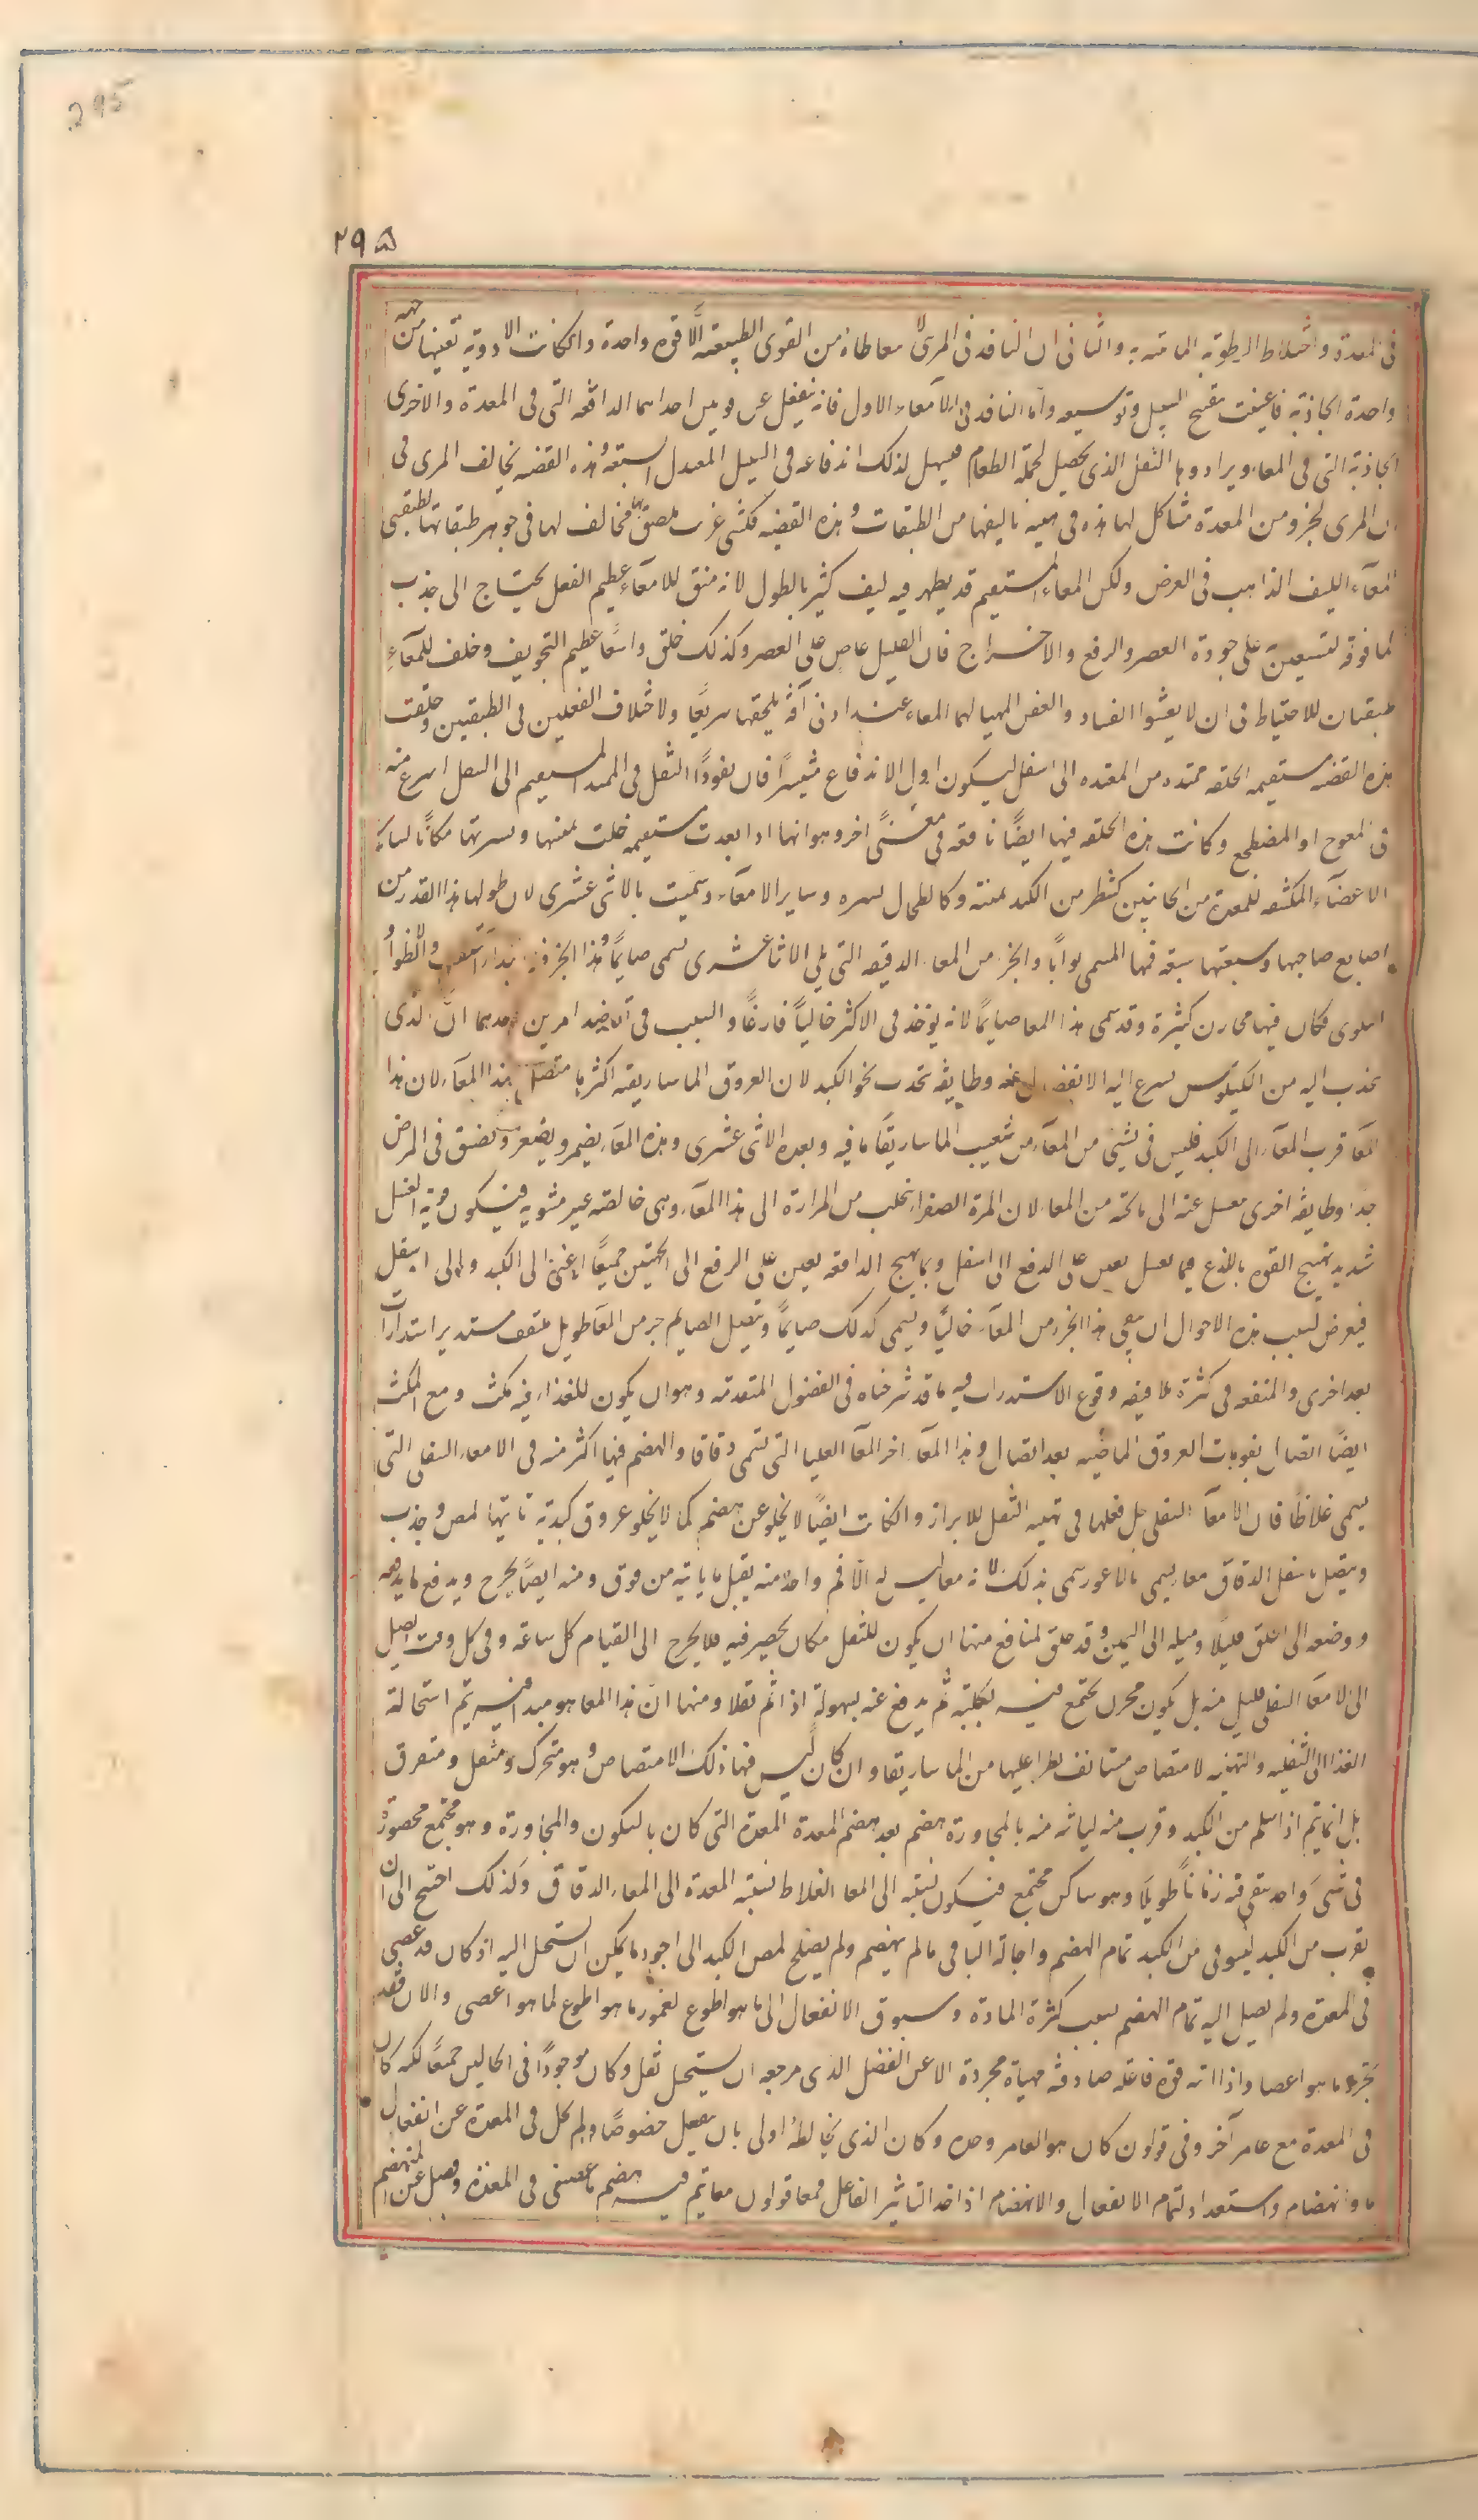 295
٢٩۵
فی المعدة واختلاط الرطوبة المائیة به والثانی ان النافذ فی المری لا معاطاة من القوی الطبیعة الّا قوة واحدة وان کانت الادویة تعینها من جهة
واحدة الجاذبة فاعینت بتفتح السبیل وتوسیعه وامّا النافذ فی الامعاء الاول فانه ینفعل عن قوتین احداهما الدافعة التی فی المعدة والاخری
الجاذبة التی فی المعاء ویرادوها الثفل الذی یحصل لجملة الطعام فیسهل لذلک اندفاعه فی السبیل المعتدل السعة وهذه القصبة یخالف المری فی
ان المری لجزو من المعدة مشاکل لها هذه فی هیئة تالیفها من الطبقات وهذه القصبة فکشی غریب ملصق بها مخالف لها فی جوهر طبقاتها لطبقتی
المعاء اللیف الذاهب فی العرض ولکن المعاء المستقیم قد یظهر فیه لیف کثیر بالطول لانه منق للامعاء عظیم الفعل یحتاج الی جذب
لما فوقه لتستعین به علی جودة العصر والدفع والاخراج فان القلیل عاص علی العصر وکذلک خلق واسعًا عظیم التجویف وخلف للمعاء
طبقتان للاحتیاط فی ان لا یفشوا الفساد والعفن المهیا لهما المعاء عند ادنی آفة یلحقها سریعًا ولاختلاف الفعلین فی الطبقتین وخلقت
هذه القصبة مستقیمة الخلقة ممتدة من المعدة الی اسفل لیکون اول الاندفاع متیسرًا فان نفوذ الثفل فی الممتد المستقیم الی السفل اسرع منه
فی المعوج او المضطجع وکانت هذه الخلقة فیها ایضًا نافعة فی معنًی اخر وهو انها اذا بعدت مستقیمة خلت یمنتها ویسرتها مکانًا لسایر
الاعضاء المکتنفة للمعدة من الجانبین کشطر من الکبد یمنة وکالطحال یسرة وسایر الامعاء وسمّیت بالاثنی عشری لان طولها هذا القدر من
اصابع صاحبها وسعتها سعة فمها المسمی بوابًا والجزء من المعاء الدقیقة التی یلی الاثنا عشری یسمی صایمًا وهذا الجزء فیه ابتدا التلفف والانطواء
التلوی فکان فیها مخازن کثیرة وقد سمی هذا المعا صایمًا لانه یؤخذ فی الاکثر خالیًا فارغًا والسبب فی ذلک تعاضد امرین احدهما انّ الذی
یجذب الیه من الکیلوس یسرع الیه الانفصال عنه وطایفة تجذب نحو الکبد لان العروق الماساریقیة اکثرها متصل بهذا المعاء لان هذا
المعا قرب المعاء الی الکبد فلیس فی شیئ من المعاء من شعب الماساریقا ما فیه وبعده الاثنی عشری وهذه المعاء یضمر ویصغر ویضیق فی المرض
جدا وطایفة اخری تغسل عنه الی ما تحته من المعاء لان المرة الصفراء یتحلب من المرارة الی هذا المعاء وهی خالصة غیر مشوبة فیکون قویة الغسل
شدید تهییج القوة باللذع فیما یغسل یعین علی الدفع الی اسفل وبما یهیج الدافعة یعین علی الدفع الی الجهتین جمیعًا اعنی الی الکبد والی اسفل
فیعرض بسبب هذه الاحوال ان یبقی هذا الجزء من المعاء خالیًا ویسمی کذلک صایمًا ویتصل الصایم جزء من المعا طویل متلفف مستدیر استدارات
بعد اخری والمنفعة فی کثرة تلافیفه ووقوع الاستدارات فیه ما قد شرحناه فی الفصول المتقدمة وهو ان یکون للغذاء فیه مکث ومع المکث
ایضًا اتصال بفوهات العروق الماصّة بعد اتصال وهذا المعاء اخر المعا العلیا التی تسمی دقاقا والهضم فیها اکثر منه فی الامعاء السفلی التی
یسمی غلاظًا فان الامعاء السفلی جل فعلها فی تهیة الثفل للابراز وان کانت ایضًا لا یخلو عن هضم کما لا یخلو عروق کبدیة تاتیها لمص وجذب
ویتصل باسفل الدقاق معاء یسمی بالاعور سمی بذلک لانه معا لیس له الّا فم واحد منه یقبل ما یاتیه من فوق ومنه ایضًا یخرج ویدفع ما یدفعه
ووضعه الی الخلق قلیلًا ومیله الی الیمین وقد خلق لمنافع منها ان یکون للثفل مکان یحصر فیه فلا یخرج الی القیام کل ساعة وفی کل وقت یصل
الی الامعاء السفلی قلیل منه بل یکون مخزن یجتمع فیه بکلیته ثم یدفع عنه بسهولة اذا تم ثقلا ومنها انّ هذا المعا هو مبدا فیه یتم استحالة
الغذا الی الثفلیة والتهیة لامتصاص مستانف یطرا علیها من الماساریقا وان کان لیس فیها ذلک الامتصاص وهو متحرک ومنتقل ومتفرق
بل انما یتم اذا سلم من الکبد وقرب منه لیاتیه منه بالمجاورة هضم بعد هضم المعدة المعدة التی کان بالسکون والمجاورة وهو مجتمع محصور
فی شیء واحد یبقی فیه زمانًا طویلًا وهو ساکن مجتمع فیکون نسبته الی المعا الغلاظ نسبة المعدة الی المعاء الدقاق وکذلک احتیج الی ان
یقرب من الکبد لیستوفی من الکبد تمام الهضم واحالة الباقی مالم ینهضم ولم یصلح لمص الکبد الی اجود ما یمکن ان یستحیل الیه اذ کان قد عصی
فی المعدة ولم یصل الیه تمام الهضم بسبب کثرة المادة وسبوق الانفعال الی ما هو اطوع لغمور ما هو اطوع لما هو اعصی والان فقد
تجرد ما هو اعصا واذا اته قوة فاعلة صادفته مهیاة مجردة الا عن الفضل الذی من حقه ان یستحیل ثفل وکان موجودًا فی الحالین جمیعًا لکنه کان
فی المعدة مع غامر آخر وفی قولون کان هو الغامر وحده وکان الذی یخالطه اولی بان ینفعل خصوصًا ولم یخل فی المعدة عن انفعال
ما وانهضام واستعداد لتمام الانفعال والانهضام اذا خد التاثیر الفاعل فمعا قولون معا یتم فیه هضم ما عصی فی المعدة وفضل عن المنهضم